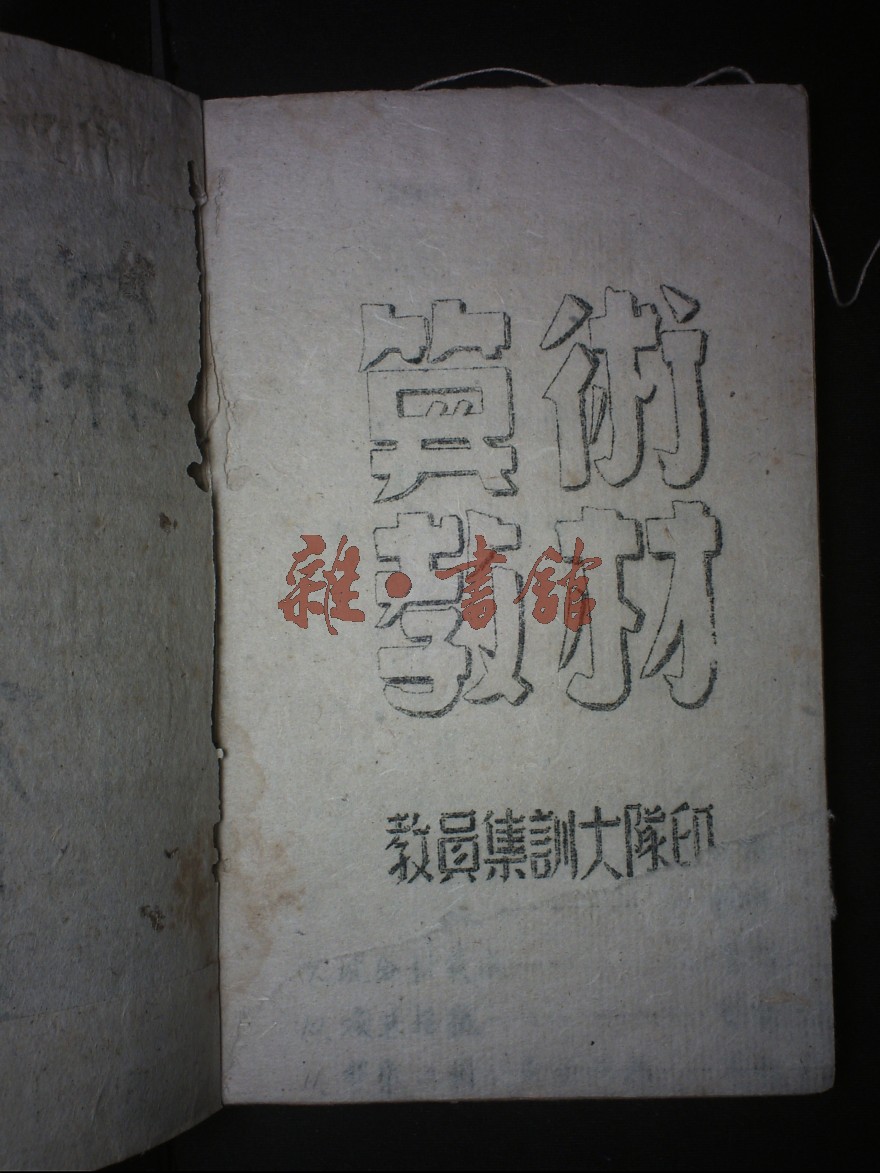 算術
教材
雜·書館
教員集訓大隊印